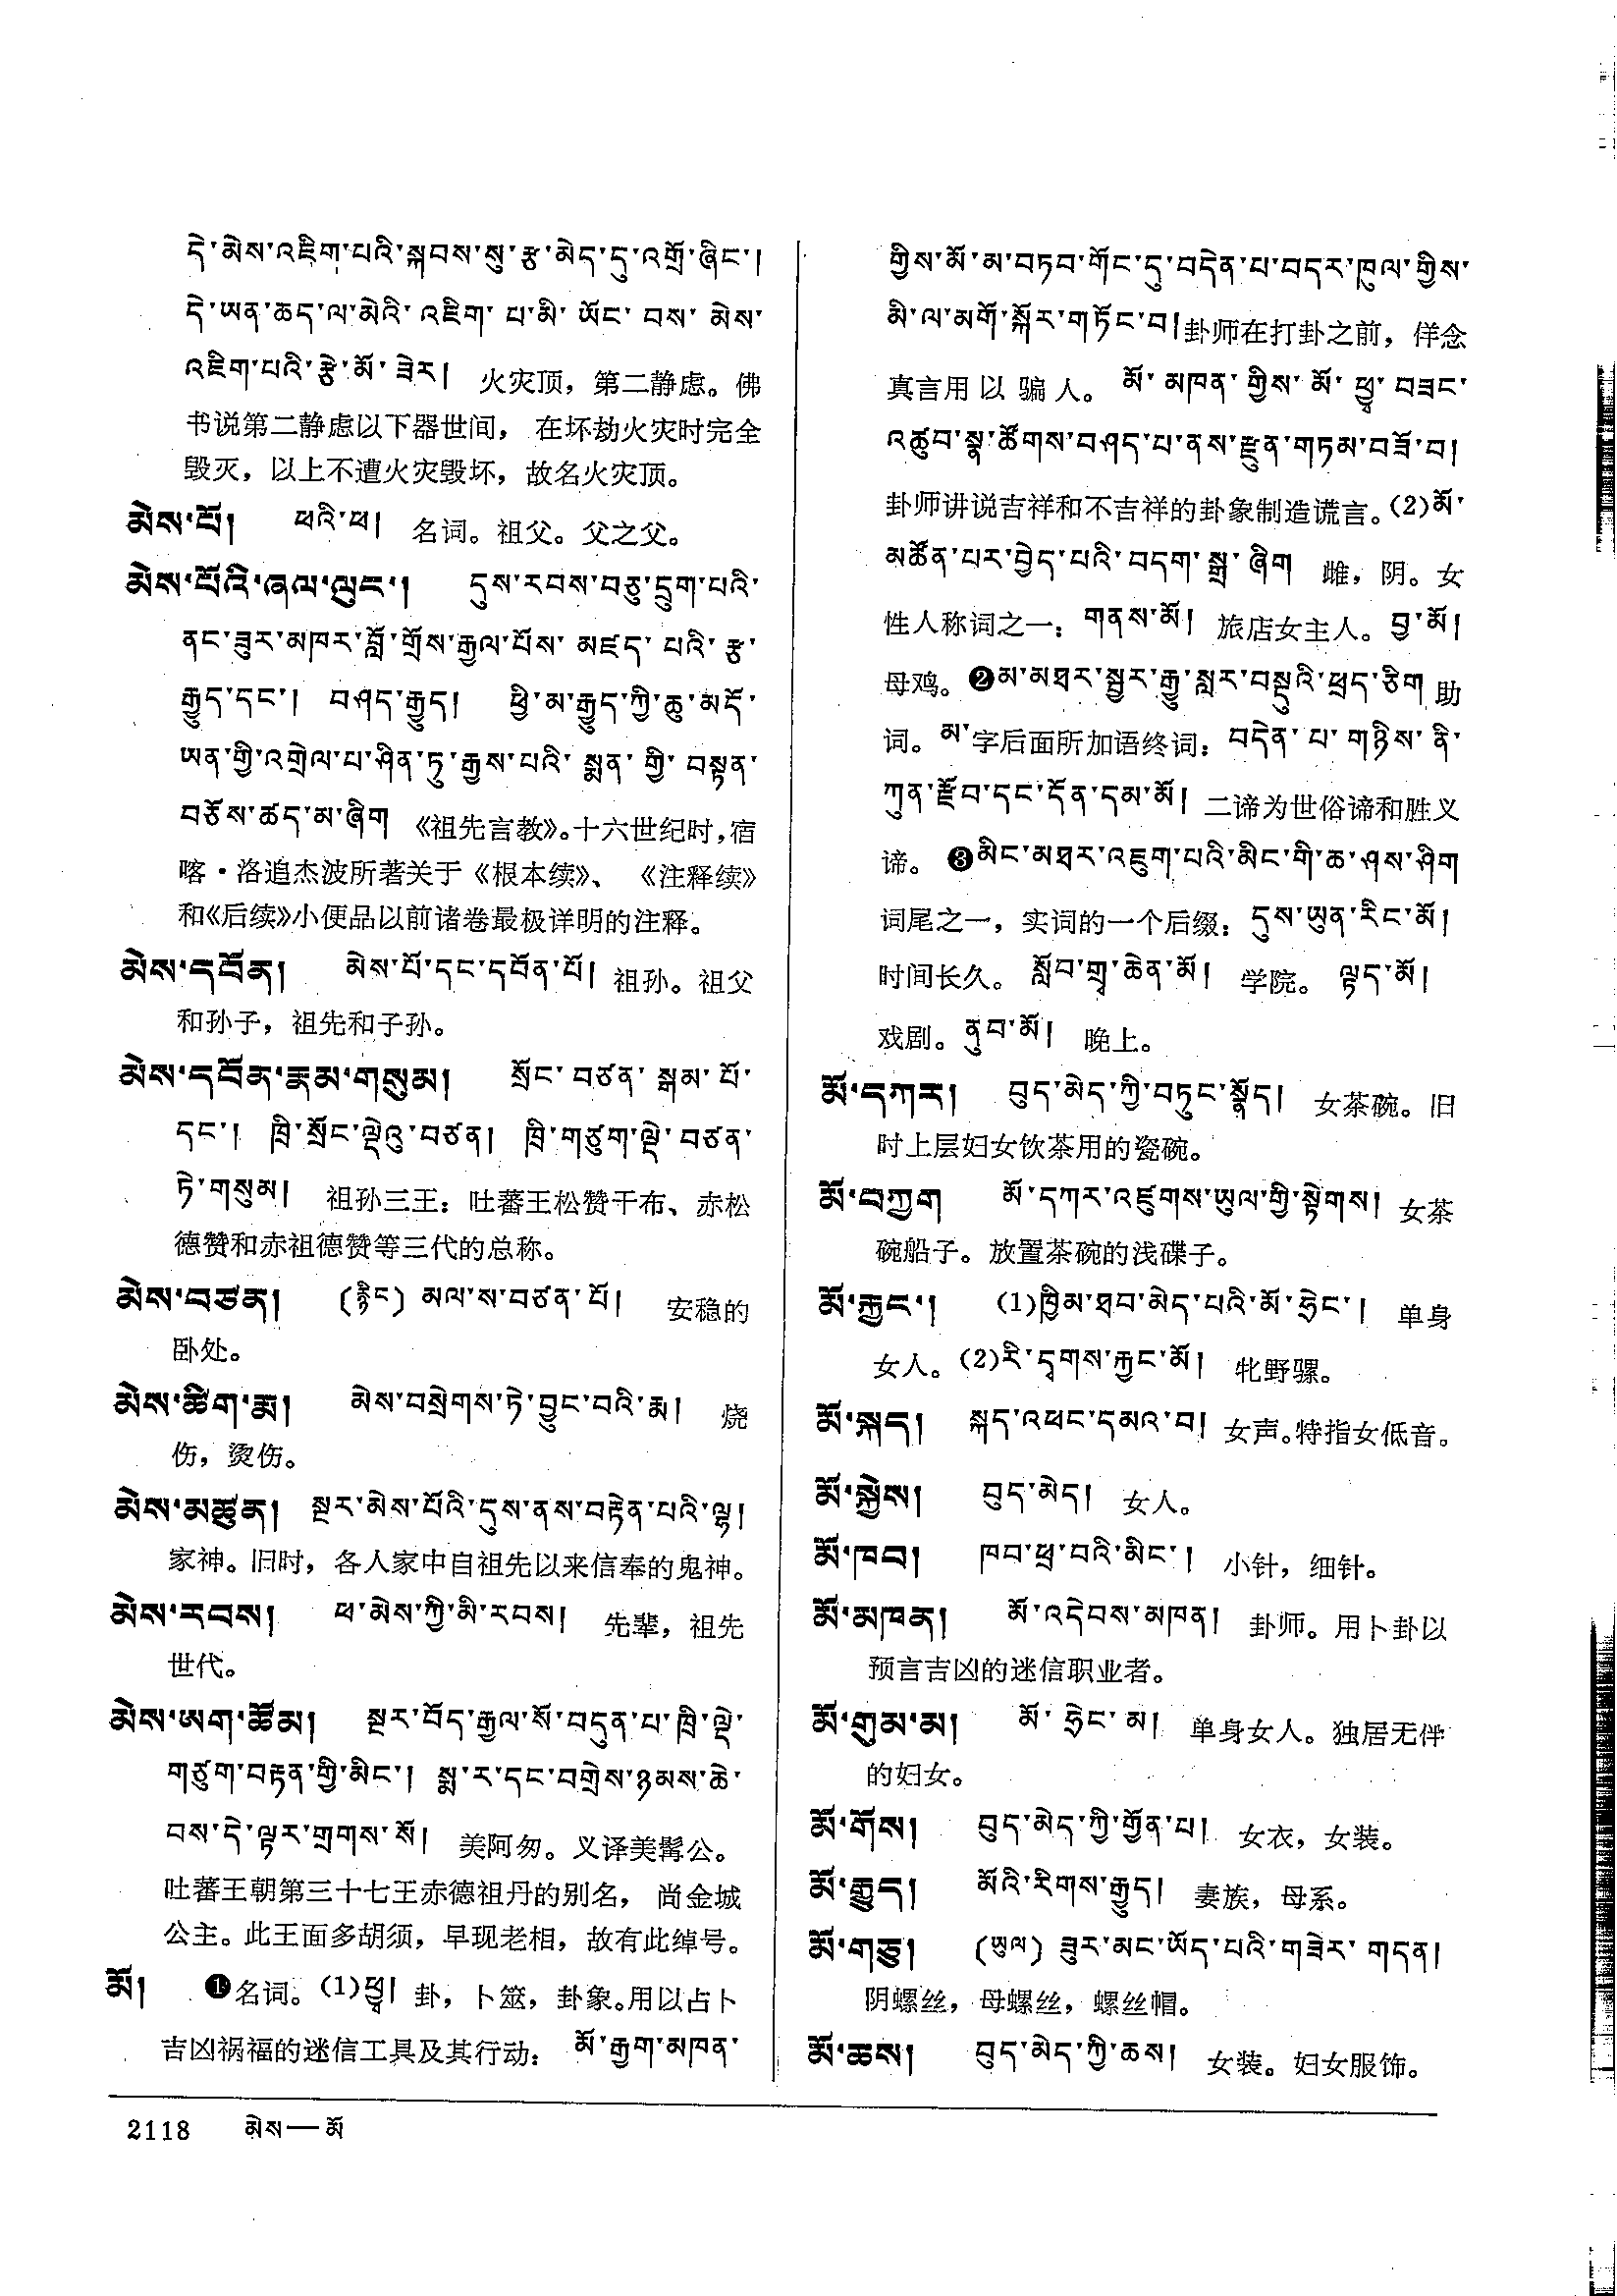 དེ་མེས་འཇིག་པའི་སྐབས་སུ་རྩ་མེད་དུ་འགྲོ་ཞིང་།
དེ་ཡན་ཆད་ལ་མེའི་འཇིག་པ་མི་ཡོང་བས་མེས་
འཇིག་པའི་རྩེ་མོ་ཟེར། 火灾顶，第二静虑。佛
书说第二静虑以下器世间，在坏劫火灾时完全
毁灭，以上不遭火灾毁坏，故名火灾顶。
མེས་པོ། ཕའི་ཕ། 名词。祖父。父之父。
མེས་པོའི་ཞལ་ལུང་། དུས་རབས་བཅུ་དྲུག་པའི་
ནང་ཟུར་མཁར་བློ་གྲོས་རྒྱལ་པོས་མཛད་པའི་རྩ་
རྒྱུད་དང་། བཤད་རྒྱུད། ཕྱི་མ་རྒྱུད་ཀྱི་ཆུ་མདོ་
ཡན་གྱི་འགྲེལ་པ་ཤིན་ཏུ་རྒྱས་པའི་སྨན་གྱི་བསྟན་
བཅོས་ཚད་མ་ཞིག 《祖先言教》。十六世纪时，宿
喀·洛追杰波所著关于《根本续》、《注释续》
和《后续》小便品以前诸卷最极详明的注释。
མེས་དབོན། མེས་པོ་དང་དབོན་པོ། 祖孙。祖父
和孙子，祖先和子孙。
མེས་དབོན་རྣམ་གསུམ། སྲོང་བཙན་སྒམ་པོ་
དང་། ཁྲི་སྲོང་ལྡེའུ་བཙན། ཁྲི་གཙུག་ལྡེ་བཙན་
ཏེ་གསུམ། 祖孙三王：吐蕃王松赞干布、赤松
德赞和赤祖德赞等三代的总称。
མེས་བཙན། (རྙིང) མལ་ས་བཙན་པོ། 安稳的
卧处。
མེས་ཚིག་རྨ། མེས་བསྲེགས་ཏེ་བྱུང་བའི་རྨ། 烧
伤，烫伤。
མེས་མཚུན། སྔར་མེས་པོའི་དུས་ནས་བརྟེན་པའི་ལྷ།
家神。旧时，各人家中自祖先以来信奉的鬼神。
མེས་རབས། ཕ་མེས་ཀྱི་མི་རབས། 先辈，祖先
世代。
མེས་ཨག་ཚོམ། སྔར་བོད་རྒྱལ་སོ་བདུན་པ་ཁྲི་ལྡེ་
གཙུག་བརྟན་གྱི་མིང་། སྨ་ར་དང་བགྲེས་ཉམས་ཆེ་
བས་དེ་ལྟར་གྲགས་སོ། 美阿匆。义译美髯公。
吐蕃王朝第三十七王赤德祖丹的别名，尚金城
公主。此王面多胡须，早现老相，故有此绰号。
མོ། ❶名词。(1)ཕྱྭ། 卦，卜筮，卦象。用以占卜
吉凶祸福的迷信工具及其行动： མོ་རྒྱག་མཁན་
གྱིས་མོ་མ་བཏབ་གོང་དུ་བདེན་པ་བདར་ཁུལ་གྱིས་
མི་ལ་མགོ་སྐོར་གཏོང་བ། 卦师在打卦之前，佯念
真言用以骗人。 མོ་མཁན་གྱིས་མོ་ཕྱྭ་བཟང་
འཚུབ་སྣ་ཚོགས་བཤད་པ་ནས་རྫུན་གཏམ་བཟོ་བ།
卦师讲说吉祥和不吉祥的卦象制造谎言。(2)མོ་
མཚོན་པར་བྱེད་པའི་བདག་སྒྲ་ཞིག 雌，阴。女
性人称词之一： གནས་མོ། 旅店女主人。 བྱ་མོ།
母鸡。❷མ་མཐར་སྦྱར་རྒྱུ་སླར་བསྡུའི་ཕྲད་ཅིག 助
词。མ་字后面所加语终词： བདེན་པ་གཉིས་ནི་
ཀུན་རྫོབ་དང་དོན་དམ་མོ། 二谛为世俗谛和胜义
谛。❸མིང་མཐར་འཇུག་པའི་མིང་གི་ཆ་ཤས་ཤིག
词尾之一，实词的一个后缀： དུས་ཡུན་རིང་མོ།
时间长久。 སློབ་གྲྭ་ཆེན་མོ། 学院。 ལྟད་མོ།
戏剧。 ནུབ་མོ། 晚上。
མོ་དཀར། བུད་མེད་ཀྱི་བཏུང་སྣོད། 女茶碗。旧
时上层妇女饮茶用的瓷碗。
མོ་བཀྱག མོ་དཀར་འཛུགས་ཡུལ་གྱི་སྟེགས། 女茶
碗船子。放置茶碗的浅碟子。
མོ་རྐྱང་། (1)ཁྱིམ་ཐབ་མེད་པའི་མོ་ཧྲེང་། 单身
女人。(2)རི་དྭགས་རྐྱང་མོ། 牝野骡。
མོ་སྐད། སྐད་འཕང་དམའ་བ། 女声。特指女低音。
མོ་སྐྱེས། བུད་མེད། 女人。
མོ་ཁབ། ཁབ་ཕྲ་བའི་མིང་། 小针，细针。
མོ་མཁན། མོ་འདེབས་མཁན། 卦师。用卜卦以
预言吉凶的迷信职业者。
མོ་གུམ་མ། མོ་ཧྲེང་མ། 单身女人。独居无伴
的妇女。
མོ་གོས། བུད་མེད་ཀྱི་གྱོན་པ། 女衣，女装。
མོ་རྒྱུད། མོའི་རིགས་རྒྱུད། 妻族，母系。
མོ་གཅུ། (ཡུལ) ཟུར་མང་ཡོད་པའི་གཟེར་གདན།
阴螺丝，母螺丝，螺丝帽。
མོ་ཆས། བུད་མེད་ཀྱི་ཆས། 女装。妇女服饰。
2118 མེས—མོ